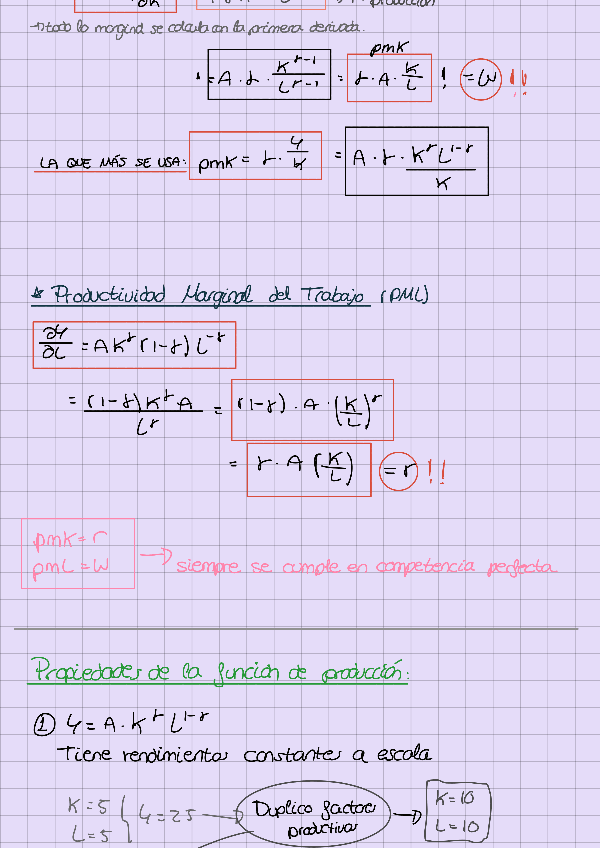 → todo lo marginal se calcula con la primera derivada.
pmk
= A · γ · K^γ-1 / L^γ-1 = γ · A · K/L ! = w !!
LA QUE MÁS SE USA: pmk = γ · Y/K = A · γ · K^γ L^1-γ / K
* Productividad Marginal del Trabajo (PML)
∂Y/∂L = A K^γ (1-γ) L^-γ
= (1-γ) K^γ A / L^γ = (1-γ) · A · (K/L)^γ
= γ · A (K/L) = r !!
pmk = r
pmL = w → siempre se cumple en competencia perfecta
Propiedades de la función de producción:
① Y = A · K^γ L^1-γ
Tiene rendimientos constantes a escala
K = 5
L = 5
Y = 25 → Duplico factores productivos →
K = 10
L = 10